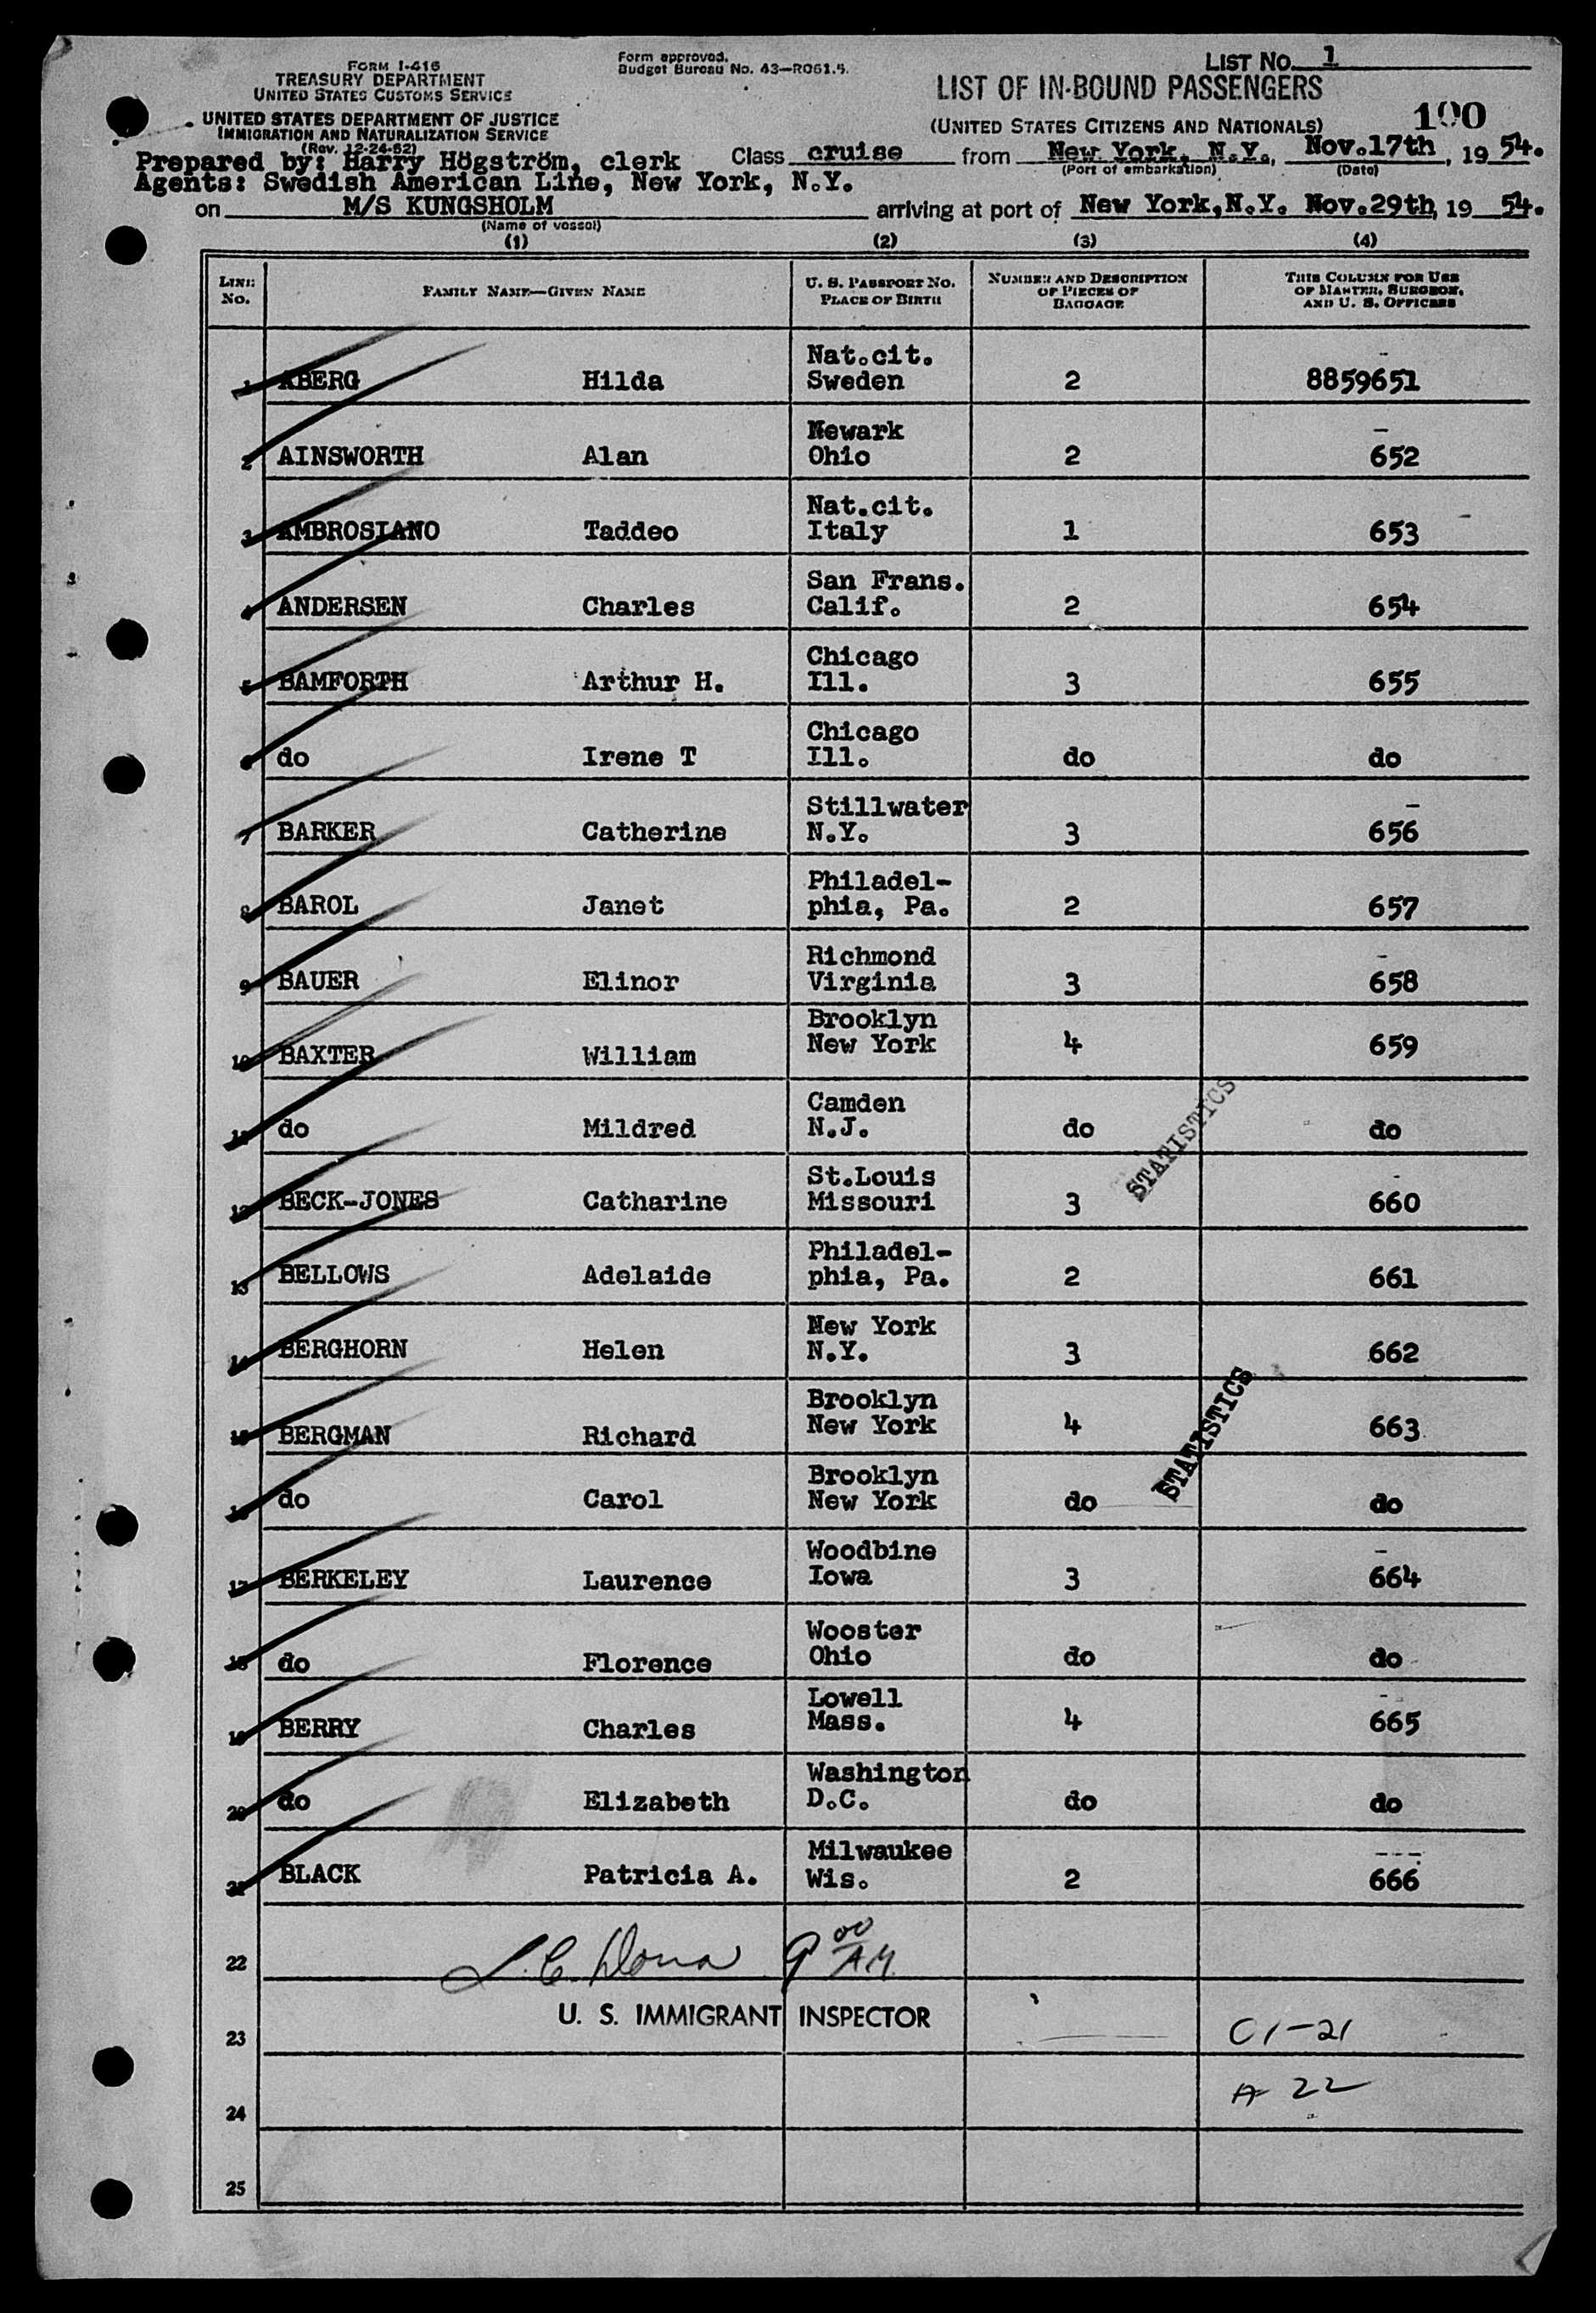 FORM I-416
TREASURY DEPARTMENT
UNITED STATES CUSTOMS SERVICE
UNITED STATES DEPARTMENT OF JUSTICE
IMMIGRATION AND NATURALIZATION SERVICE
(Rev. 12-24-52)
Form approved.
Budget Bureau No. 43—R061.5.
LIST No. 1
LIST OF IN-BOUND PASSENGERS
(UNITED STATES CITIZENS AND NATIONALS)
100
Prepared by: Harry Högström, clerk
Agents: Swedish American Line, New York, N.Y.
Class cruise from New York, N.Y., Nov.17th, 1954.
(Port of embarkation) (Date)
on M/S KUNGSHOLM arriving at port of New York,N.Y. Nov.29th, 1954.
(Name of vessel)
(1) (2) (3) (4)
LINE No. FAMILY NAME—GIVEN NAME U. S. PASSPORT NO. PLACE OF BIRTH NUMBER AND DESCRIPTION OF PIECES OF BAGGAGE THIS COLUMN FOR USE OF MASTER, SURGEON, AND U. S. OFFICERS
Nat.cit.
1 ABERG Hilda Sweden 2 8859651
Newark
2 AINSWORTH Alan Ohio 2 652
Nat.cit.
3 AMBROSIANO Taddeo Italy 1 653
San Frans.
4 ANDERSEN Charles Calif. 2 654
Chicago
5 BAMFORTH Arthur H. Ill. 3 655
Chicago
6 do Irene T Ill. do do
Stillwater
7 BARKER Catherine N.Y. 3 656
Philadel-
8 BAROL Janet phia, Pa. 2 657
Richmond
9 BAUER Elinor Virginia 3 658
Brooklyn
10 BAXTER William New York 4 659
Camden
11 do Mildred N.J. do do
St.Louis
12 BECK-JONES Catharine Missouri 3 660
STATISTICS
Philadel-
13 BELLOWS Adelaide phia, Pa. 2 661
New York
14 BERGHORN Helen N.Y. 3 662
Brooklyn
15 BERGMAN Richard New York 4 663
STATISTICS
Brooklyn
16 do Carol New York do do
Woodbine
17 BERKELEY Laurence Iowa 3 664
Wooster
18 do Florence Ohio do do
Lowell
19 BERRY Charles Mass. 4 665
Washington
20 do Elizabeth D.C. do do
Milwaukee
21 BLACK Patricia A. Wis. 2 666
22 9 00 A.M.
U. S. IMMIGRANT INSPECTOR
23 C 1-21
24 A 22
25